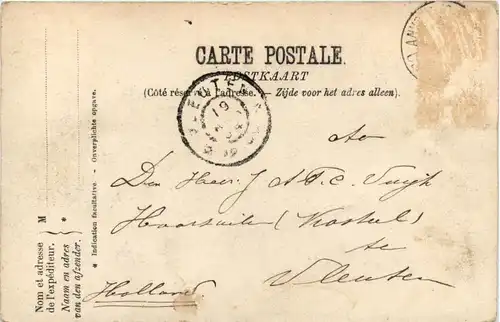 CARTE POSTALE.
POSTKAART
(Côté réservé à l'adresse. — Zijde voor het adres alleen).
VLEUTEN
Den Heer J A F C
Haarzuilen (Kasteel)
te
Vleuten
Holland
Nom et adresse
de l'expéditeur. } M
Naam en adres
van den afzender. } *
* Indication facultative. - Onverplichte opgave.